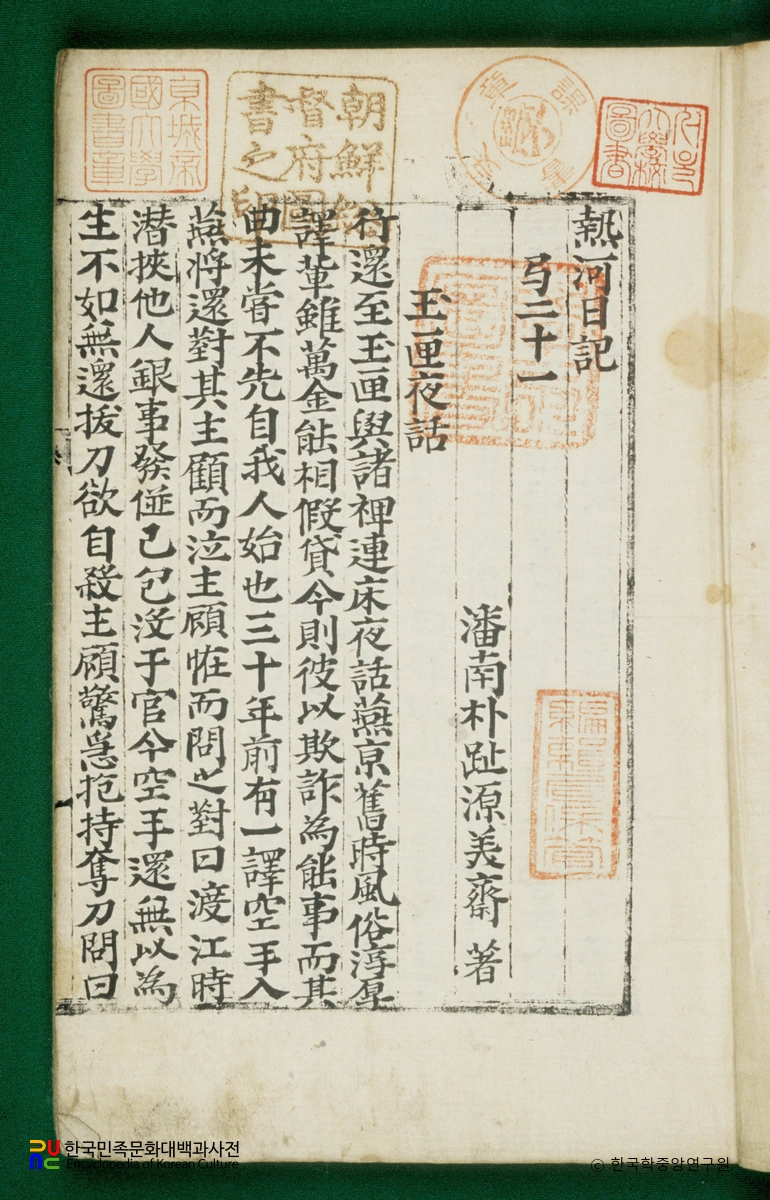 熱河日記
弓二十一
潘南朴趾源美齋著
玉匣夜話
行還至玉匣與諸裨連床夜話燕京舊時風俗淳厚
譯輩雖萬金能相假貸今則彼以欺詐為能事而其
曲未嘗不先自我人始也三十年前有一譯空手入
燕將還對其主顧而泣主顧恠而問之對曰渡江時
潜挾他人銀事發倂己包沒于官今空手還無以為
生不如無還拔刀欲自殺主顧驚急抱持奪刀問曰
京城帝
國大學
圖書章
朝鮮總
督府圖
書之印
한국민족문화대백과사전
Encyclopedia of Korean Culture
ⓒ 한국학중앙연구원